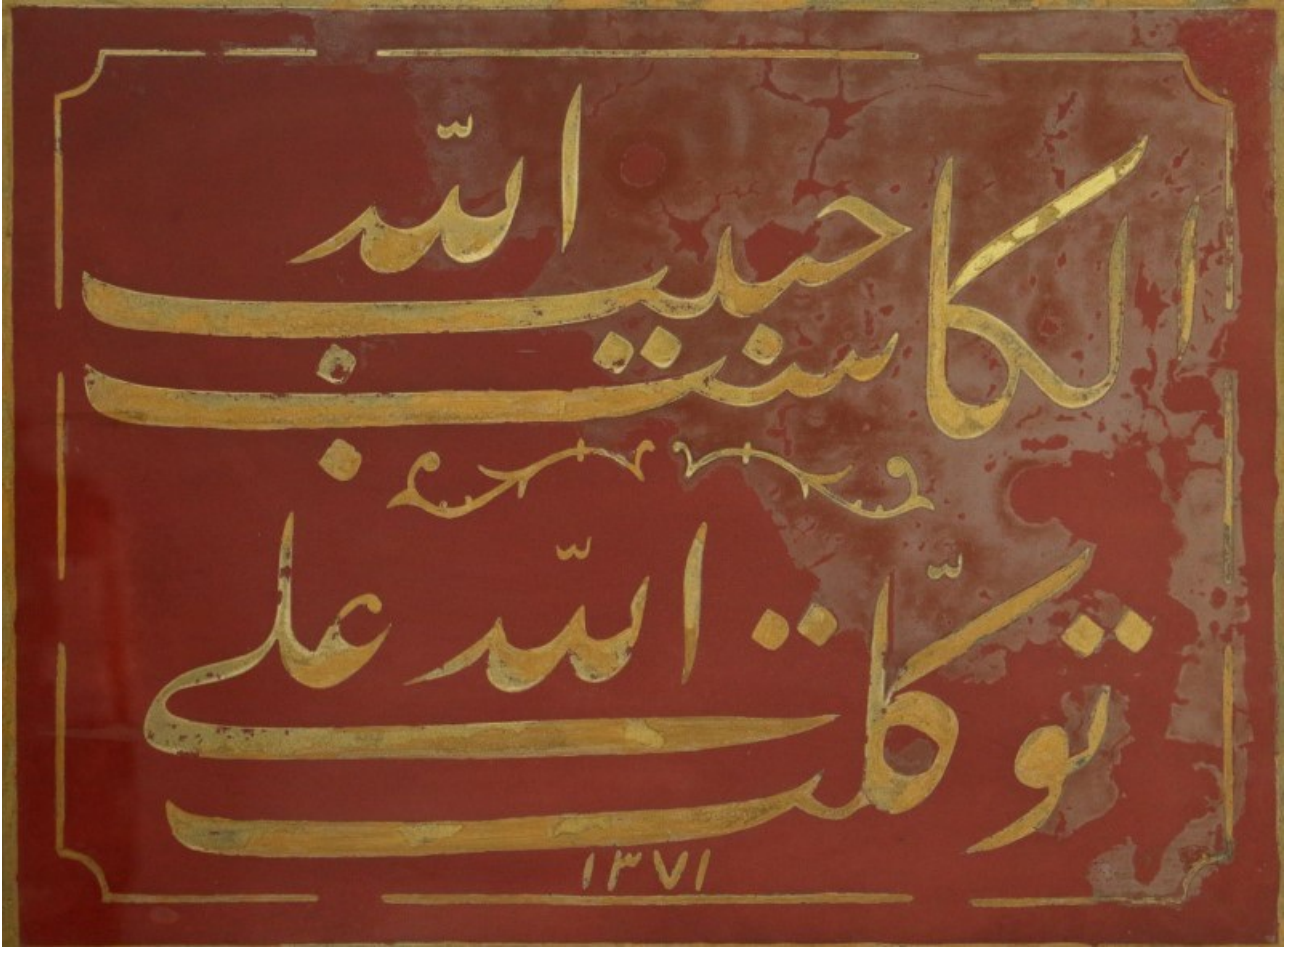 الكاسب حبيب اللّٰه
توكّلت على اللّٰه
١٣٧١